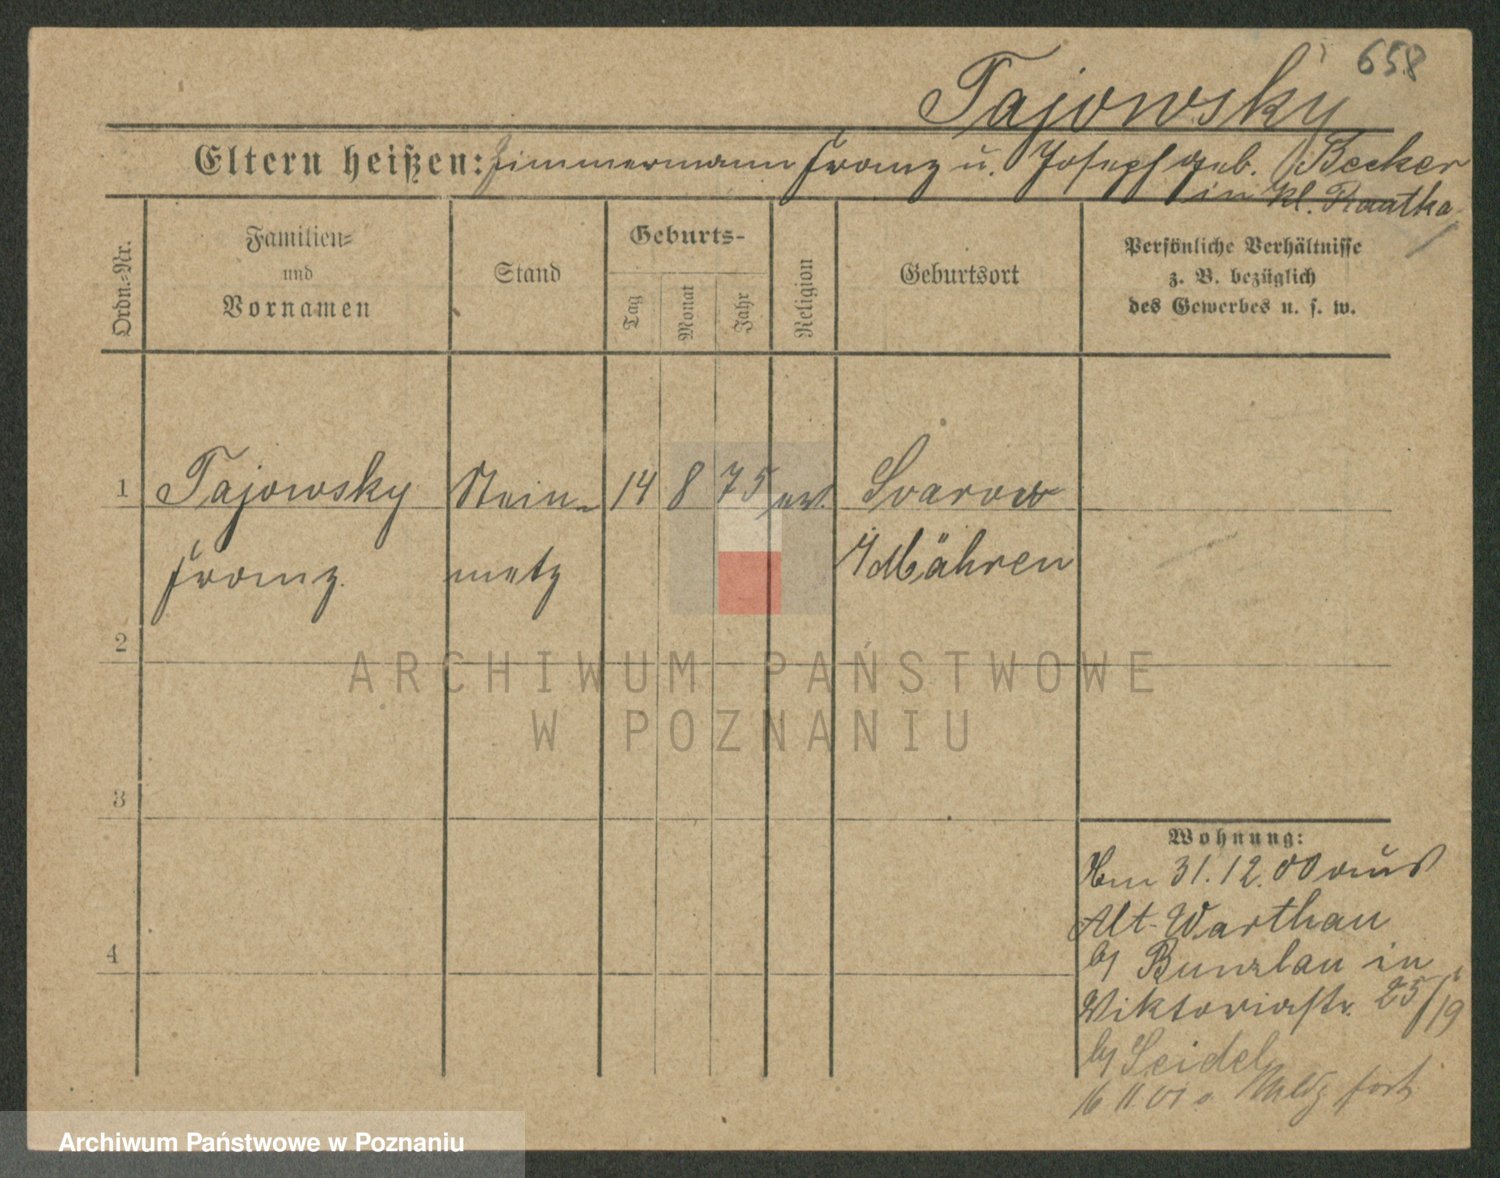 658
Tajowsky
Eltern heißen: Zimmermann Franz u. Joseph geb. Becker
in Kl.
Ordn.-Nr.
Familien-
und
Vornamen
Stand
Geburts-
Tag
Monat
Jahr
Religion
Geburtsort
Persönliche Verhältnisse
z. B. bezüglich
des Gewerbes u. s. w.
1 Tajowsky Stein- 14 8 75 ev. Svarow
Franz. metz Mähren
2
3
4
Wohnung:
31.12.00 aus
Alt-Warthau
by Bunzlau in
Viktoriastr. 25/19
by Seidel
16 11 01 o Meldg fort
ARCHIWUM PAŃSTWOWE
W POZNANIU
Archiwum Państwowe w Poznaniu